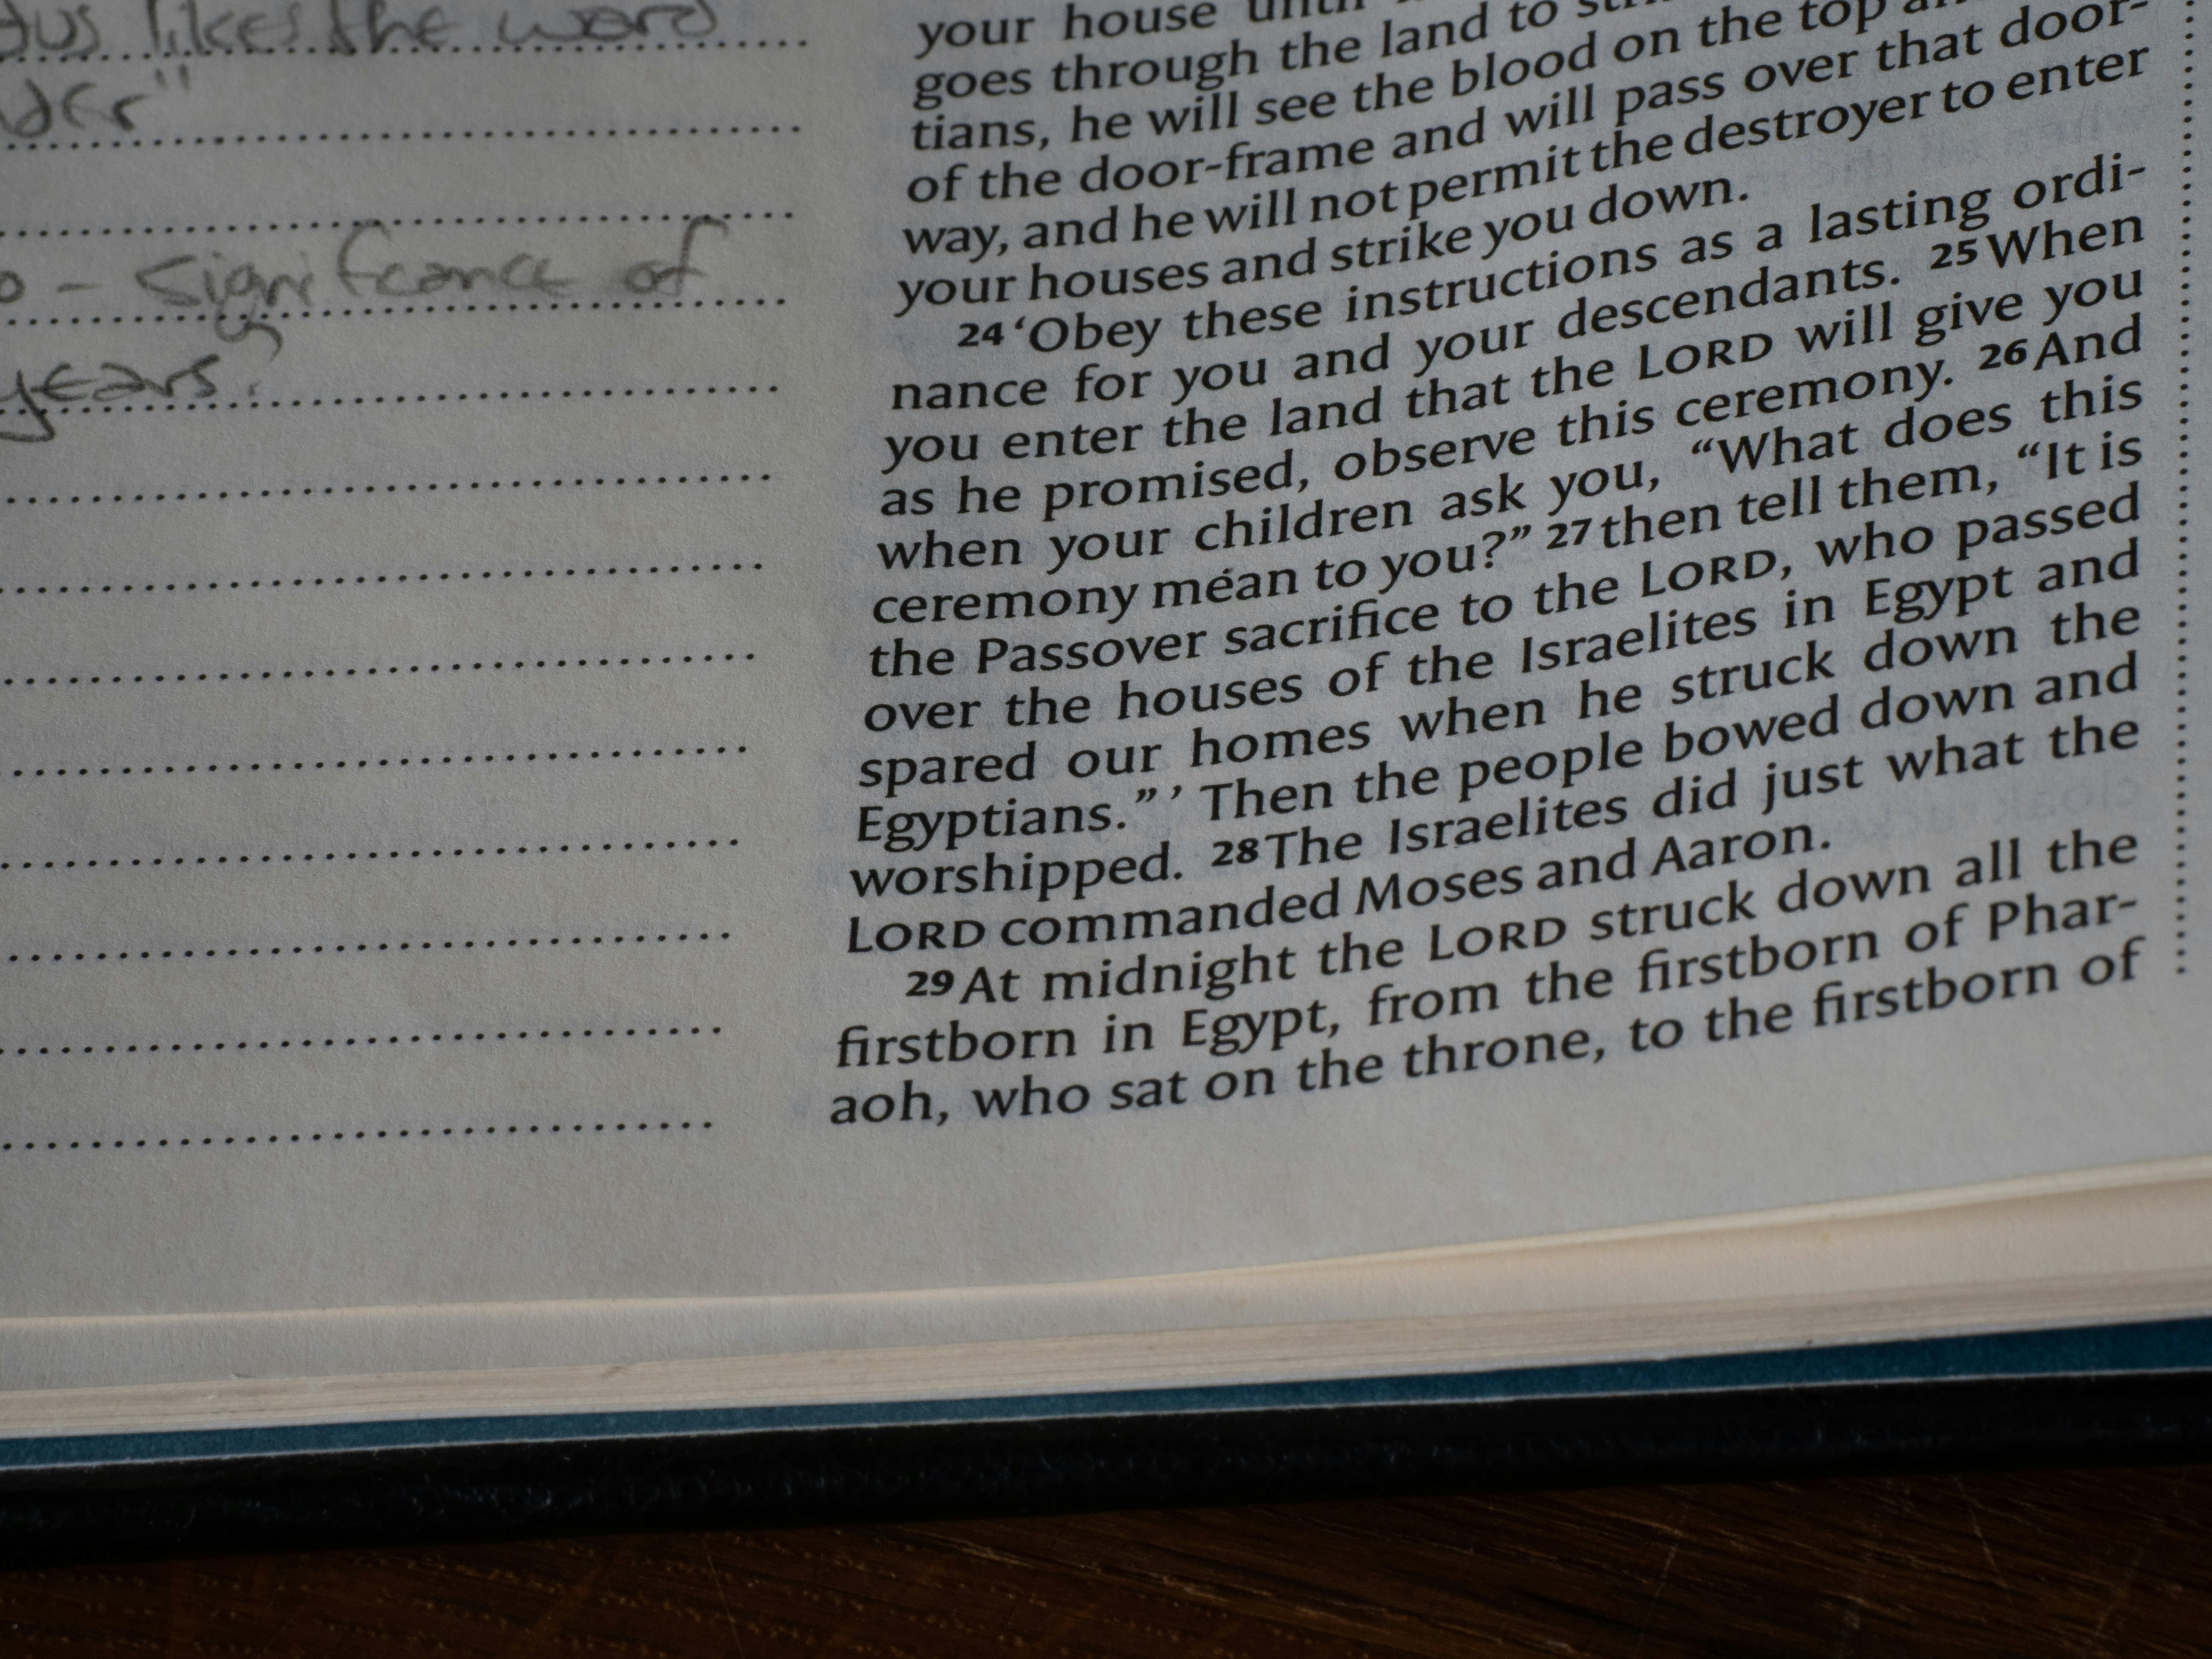 likes the word
- significance of
years?
your house until
goes through the land to
tians, he will see the blood on the top
of the door-frame and will pass over that door-
way, and he will not permit the destroyer to enter
your houses and strike you down.
24 ‘Obey these instructions as a lasting ordi-
nance for you and your descendants. 25 When
you enter the land that the LORD will give you
as he promised, observe this ceremony. 26 And
when your children ask you, “What does this
ceremony mean to you?” 27 then tell them, “It is
the Passover sacrifice to the LORD, who passed
over the houses of the Israelites in Egypt and
spared our homes when he struck down the
Egyptians.” ’ Then the people bowed down and
worshipped. 28 The Israelites did just what the
LORD commanded Moses and Aaron.
29 At midnight the LORD struck down all the
firstborn in Egypt, from the firstborn of Phar-
aoh, who sat on the throne, to the firstborn of